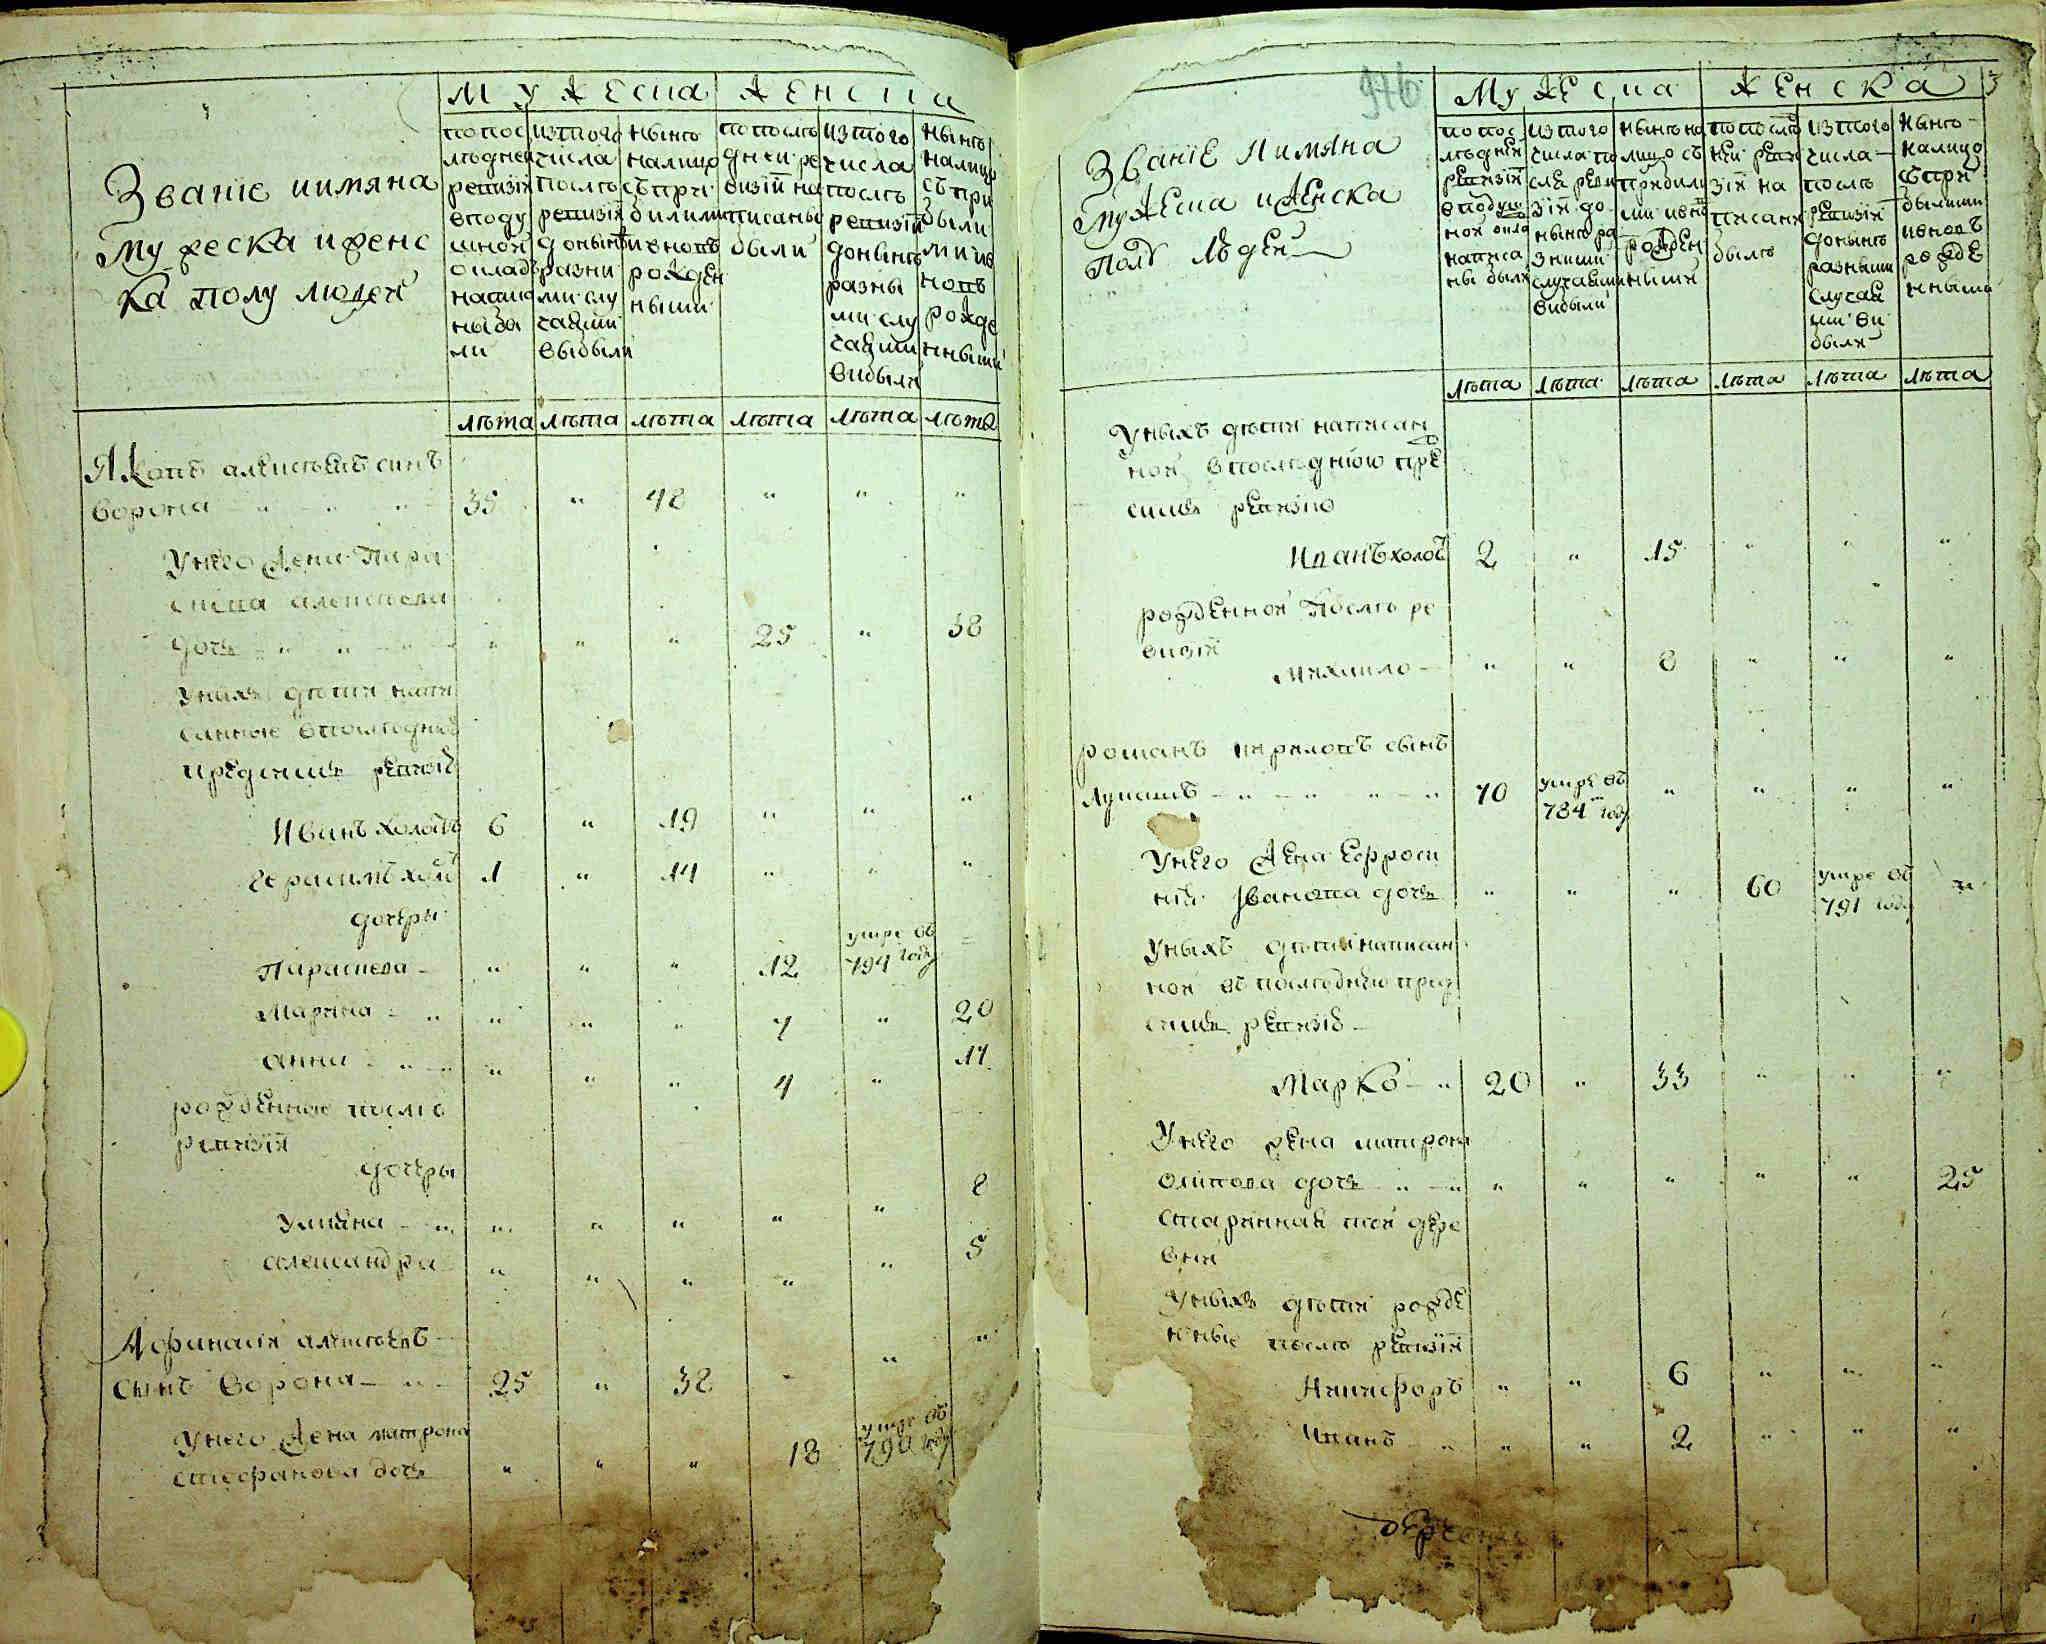 Мужеска Женска
Званіе иимяна
мужеска иженс
ка полу людей
попос
лѣдней
ревизіи
вподу
шной
окладъ
написа
ны бы
ли
изтого
числа
послѣ
ревизіи
донынѣ
разни
ми слу
чаями
выбыли
нынѣ
налицо
съпри
билими
ивновь
рожден
ными
попослѣ
дней ре
визіи на
писаны
были
изтого
числа
послѣ
ревизіи
донынѣ
разны
ми слу
чаями
вибыли
нынѣ
налицо
съпри
были
ми ив
новь
рожде
нными
лѣта лѣта лѣта лѣта лѣта лѣта
Яковъ алексѣевъ синъ
ворона 35 " 48 " " "
Унего жена Пара
скева алексѣева
дочь " " " 25 " 38
Унихъ дѣти напи
санные впослѣдней
предъ симъ ревизіи
Иванъ холостъ 6 " 19 " " "
Герасимъ хол 1 " 14 " " "
дочери
Параскева " " " 12 умре въ 794 году
Марина " " " 7 " 20
анна " " " 4 " 17
рожденные послѣ
ревизіи
дочеры
Улияна " " " " " 8
александра " " " " " 5
Афанасій алексѣевъ
сынъ ворона 25 " 38 " " "
Унего жена матрона
стефанова дочь " " " 18 умре въ 790 году
976
3
Мужеска Женска
Званіе иимяна
мужеска иженска
полу людей
попос
лѣдней
ревизіи
вподуш
ной окла
написа
ны были
изтого
числа по
слѣ реви
зіи до
нынѣ ра
зними
случаями
вибыли
нынѣ на
лицо съ
прибили
ми ивно
рожден
ными
попослѣд
ней реви
зіи на
писани
былѣ
изтого
числа
послѣ
ревизіи
донынѣ
разными
случая
ми ви
были
нынѣ
налицо
съпри
былими
ивновъ
рожде
нными
лѣта лѣта лѣта лѣта лѣта лѣта
Уныхъ дѣти написан
ной впослѣднюю пре
симъ ревизію
Иванъ холо 2 " 15 " " "
рожденной послѣ ре
визіи
михаило " " 8 " " "
романъ кириловъ сынъ
Лукашъ 70 умре въ 784 году " " " "
Унего жена Ефроси
ния Іванова дочь " " " 60 умре въ 791 году "
Уныхъ дѣти написан
ной въ послѣднею пред
симъ ревизію
Марко 20 " 33 " " "
Унего жена матрона
осипова дочь " " " " " 25
старинная тоей дере
вни
Уныхъ дѣти рожде
нные послѣ ревизіи
Никифоръ " " 6 " " "
Иванъ " " 2 " " "